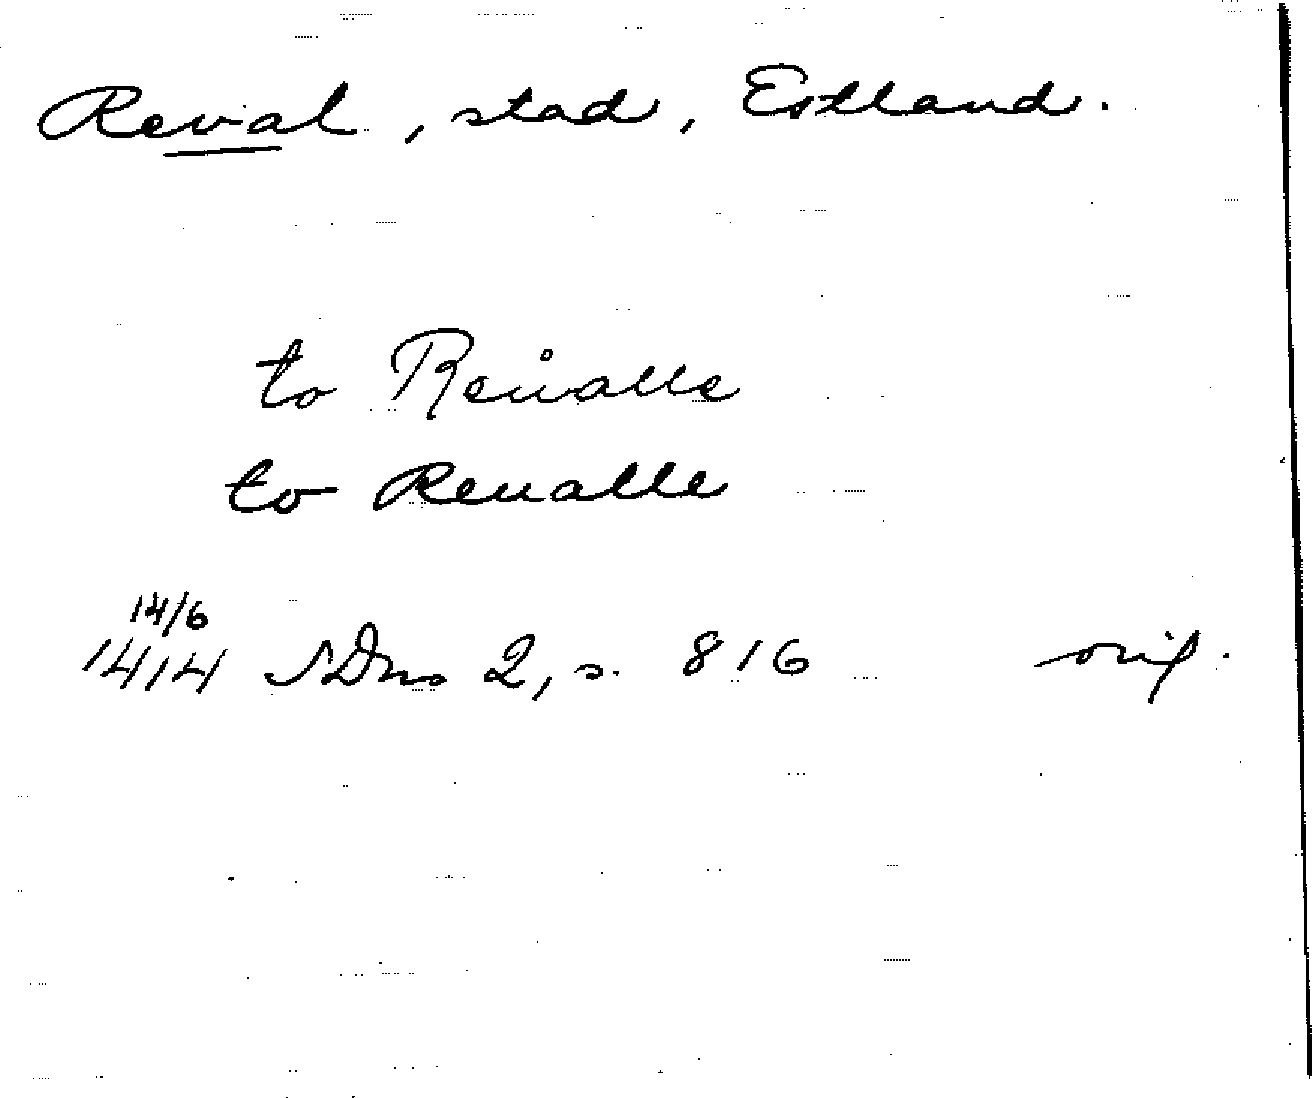 Reval, stad, Estland.
to Reůalle
to Reualle
14/6
1414 SDns 2, s. 816 orig.